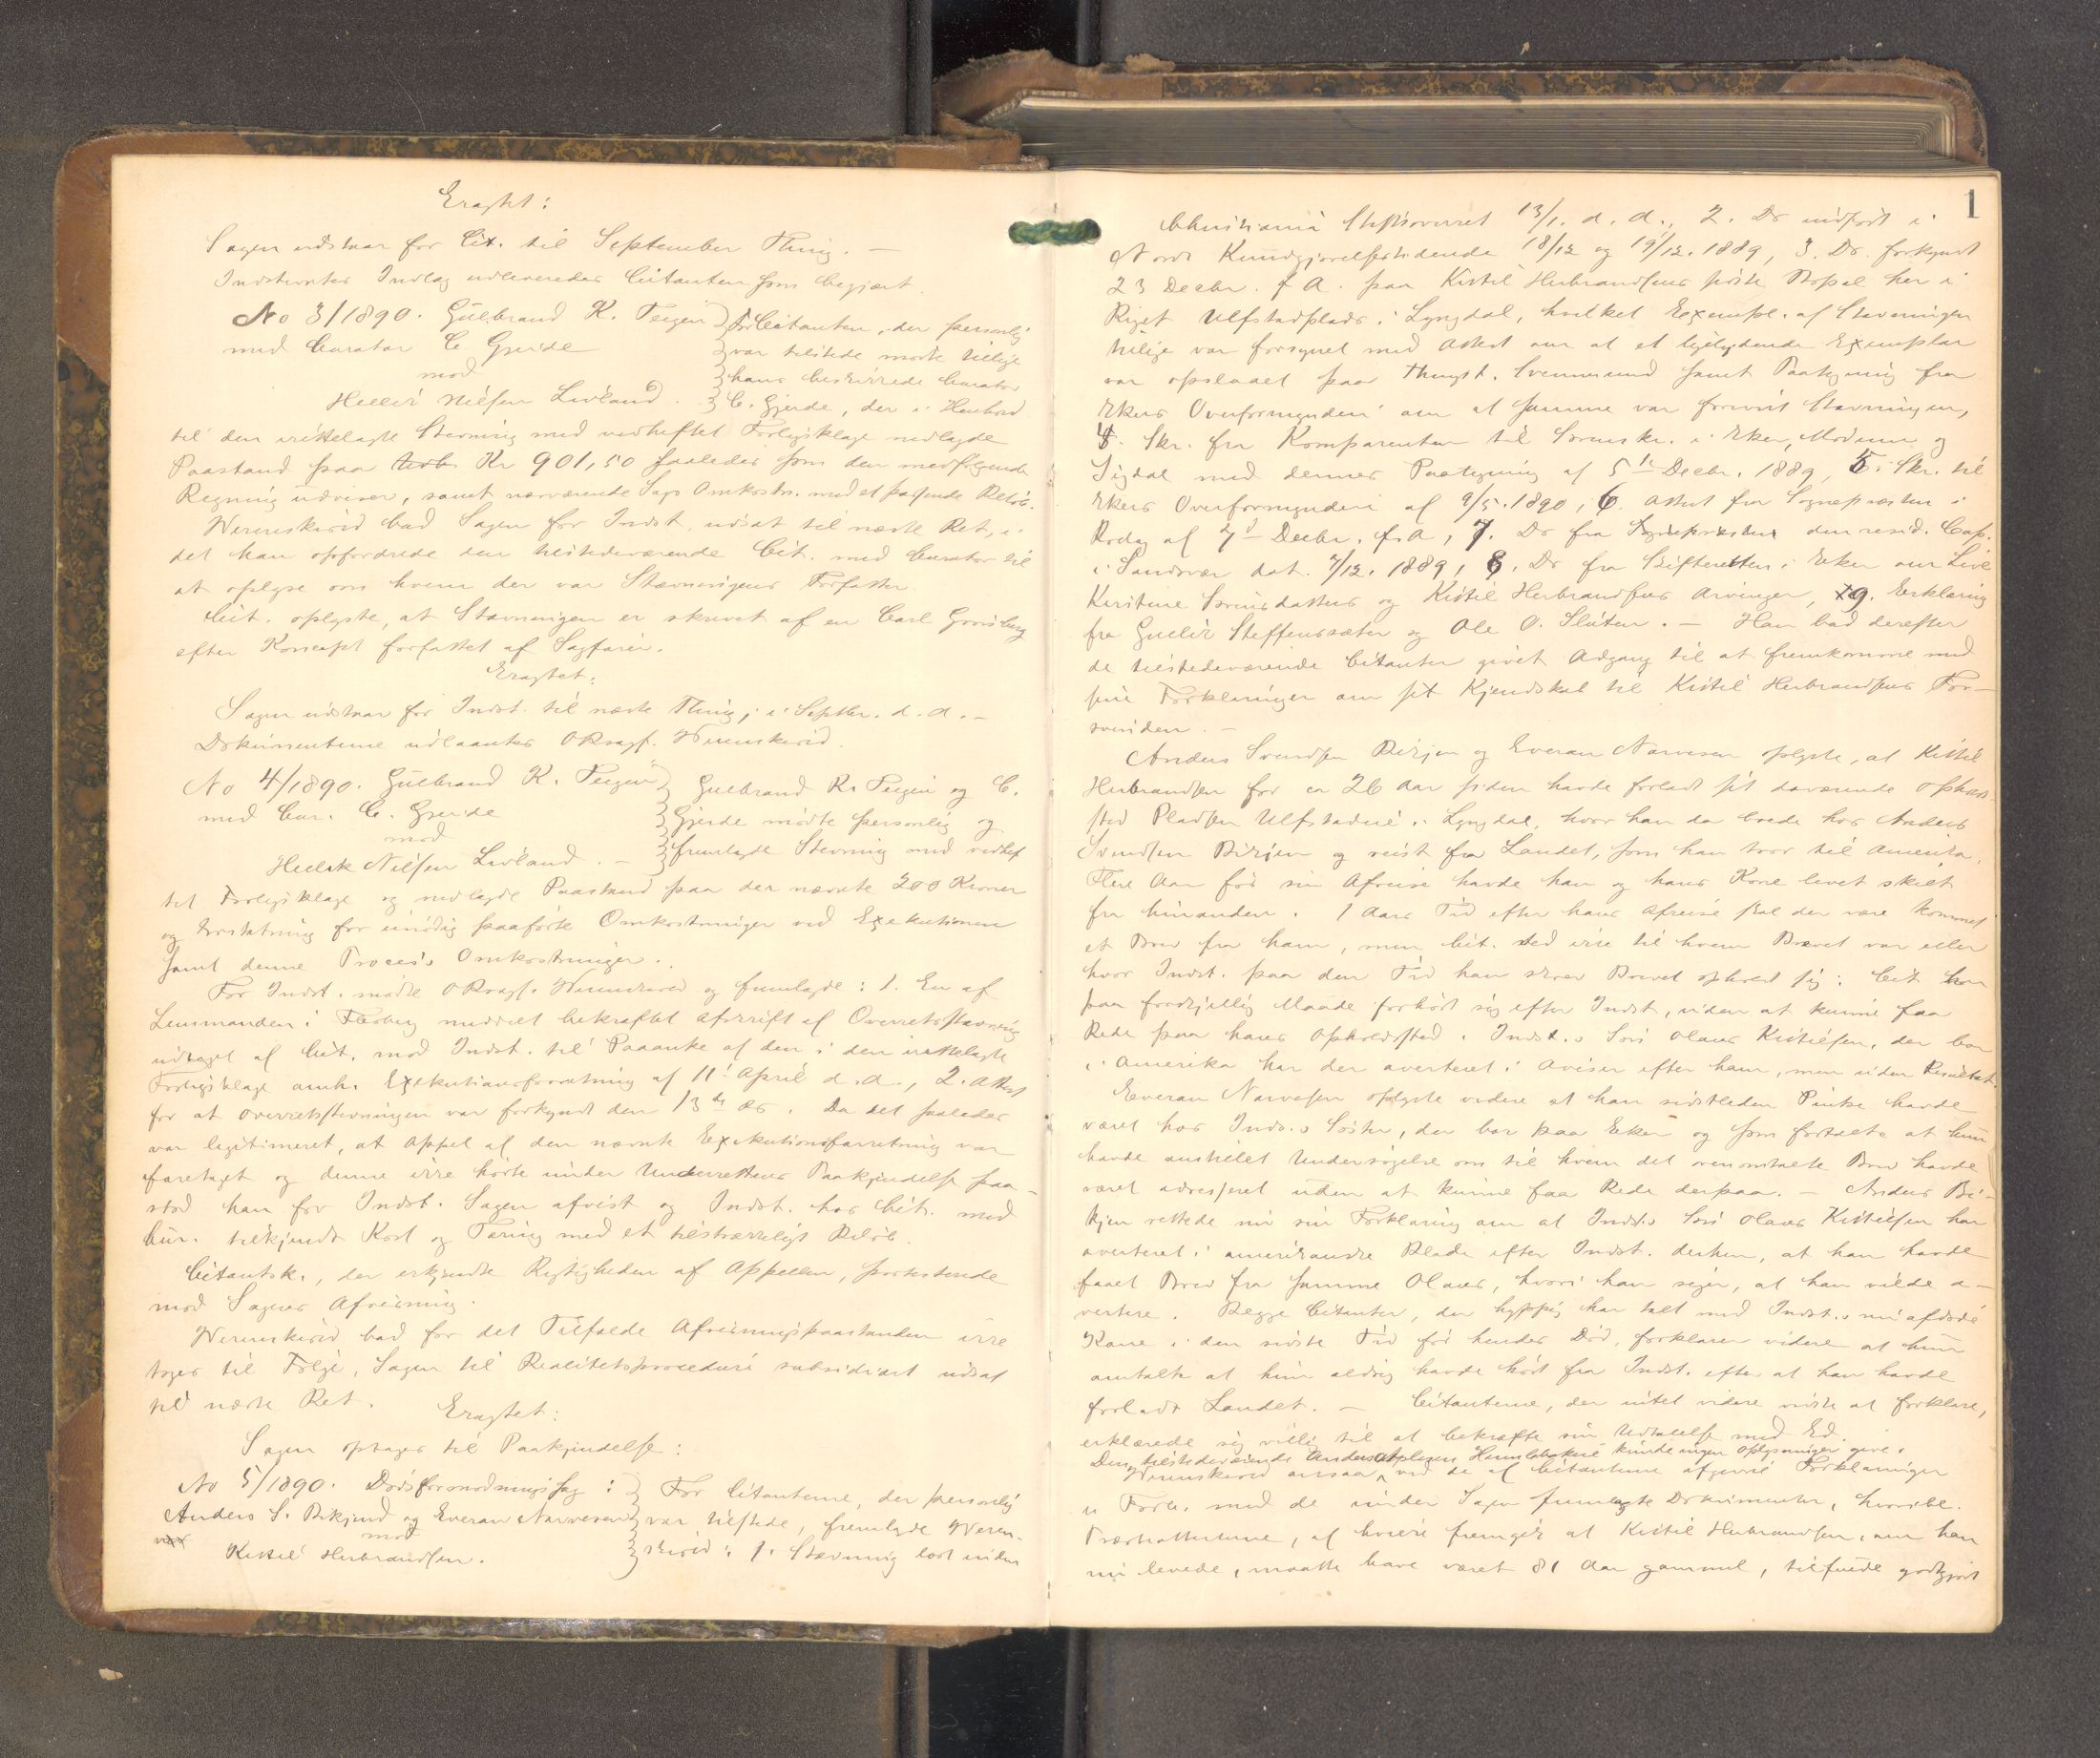 Eragtet:
Sagen udstaar for Cit. til September Thing. —
Indstevntes Indlæg udleveredes Citanten som begjært.
No 3/1890. Gulbrand K. Teigen
med Curator C. Gjerde
mod
Helleik Nielsen Livland.
For Citanten, der personlig
var tilstede mødte tillige
hans beskikkede Curator
C. Gjerde, der i Henhold
til den irettelagte Stevning med vedheftet Forligsklage nedlagde
Paastand paa Kr 901,50 saaledes som den medfølgende
Regning udviser, samt nærværende Sags Omkostn. med et passende Beløb.
Werenskiold bad Sagen for Indst. udsat til næste Ret, i-
det han opfordrede den tilstedeværende Cit. med Curator til
at oplyse om hvem der var Stævningens Forfatter.
Cit. oplyste, at Stævningen er skrevet af en Carl
efter Koncept forfattet af Sagfører.
Eragtet:
Sagen udstaar for Indst. til næste Thing, i Septbr. d. A. —
Dokumenterne udlaantes ORsagf. Werenskiold.
No 4/1890. Gulbrand K. Teigen
med Cur. C. Gjerde
mod
Helleik Nilsen Livland. —
Gulbrand K. Teigen og C.
Gjerde mødte personlig og
fremlagde Stevning med vedhef-
tet Forligsklage og nedlagde Paastand paa der nævnte 200 Kroner
og Erstatning for unødig paaførte Omkostninger ved Exekutionen
samt denne Proces's Omkostninger.
For Indst. mødte ORsagf. Werenskiold og fremlagde: 1. En af
Lensmanden i Flesberg meddelt bekræftet Afskrift af Overretsstævning
udtaget af Cit. mod Indst. til Paaanke af den i den irettelagte
Forligsklage omh. Exekutionsforretning af 11. April d. A., 2. Attest
for at Overretsstevningen var forkyndt den 13de ds. Da det saaledes
var legitimeret, at Appel af den nævnte Exekutionsforretning var
foretaget og denne ikke hørte under Underrettens Paakjendelse paa-
stod han for Indst. Sagen afvist og Indst. hos Cit. med
Cur. tilkjendt Kost og Tæring med et tilstrækkeligt Beløb.
Citantsk., der erkjendte Rigtigheden af Appellen, protesterede
mod Sagens Afvisning.
Werenskiold bad for det Tilfælde Afvisningspaastanden ikke
toges til Følge, Sagen til Realitetsprocedure subsidiært udsat
til næste Ret.
Eragtet:
Sagen optages til Paakjendelse:
No 5/1890. Dødsformodningssag:
Anders S. Bekjend og Everan Narvesen
mod
Kittil Herbrandsen.
For Citanterne, der personlig
var tilstede, fremlagde Weren-
skiold: 1. Stævning løst under
1
Christiania Stiftsoverret 13/1. d. A., 2. Do indført i
Norsk Kundgjørelsestidende 18/12 og 19/12. 1889, 3. Do. forkyndt
23 Decbr. f. A. paa Kittil Herbrandsens sidste Bopæl her i
Riget Ulfstadplads i Lyngdal, hvilket Exempl. af Stævningen
tillige var forsynet med Attest om at et ligelydende Exemplar
var opslaaet paa Thingst. Svennesund samt Paategning fra
Ekers Overformynderi om at samme var forevist Stævningen,
4. Skr. fra Komparenten til Sorenskr. i Eker, Modum og
Sigdal med dennes Paategning af 5te Decbr. 1889, 5. Skr. til
Ekers Overformynderi af 9/5. 1890, 6. Attest fra Sognepræsten i
Rollag af 7de Decbr. f. A., 7. Do fra den resid. Cap.
i Sandsvær dat. 7/12. 1889, 8. Do fra Skifteretten i Eker om Live
Kirstine Sørensdatters og Kittil Herbrandsens Arvinger, 9. Erklæring
fra Gullik Steffensræter og Ole O. Sletten. — Han bad derefter
de tilstedeværende Citanter givet Adgang til at fremkomme med
sine Forklaringer om sit Kjendskab til Kittil Herbrandsens For-
svinden. —
Anders Svendsen Bekjen og Everan Narvesen oplyste, at Kittil
Herbrandsen for ca 26 Aar siden havde forladt sit daværende Opholds-
sted Pladsen Ulfstadeie i Lyngdal, hvor han da boede hos Anders
Svendsen Bekjen og reist fra Landet, som han tror til Amerika.
Flere Aar før sin Afreise havde han og hans Kone levet skilt
fra hinanden. 1 Aars Tid efter hans Afreise skal der være kommet
et Brev fra ham, men Cit. ved ikke til hvem Brevet var eller
hvor Indst. paa den Tid han skrev Brevet opholdt sig: Cit. har
paa forskjellig Maade forhørt sig efter Indst., uden at kunne faa
Rede paa hans Opholdssted. Indst.s Søn Olaus Kittilsen, der bor
i Amerika har der averteret i Aviser efter ham, men uden Resultat.
Everan Narvesen oplyste videre at han sidstleden Pintse havde
været hos Indst.s Søster, der bor paa Eker og som fortalte at hun
havde anstillet Undersøgelse om til hvem det ovenomtalte Brev havde
været adresseret uden at kunne faa Rede derpaa. — Anders Be-
kjen rettede nu sin Forklaring om at Indst.s Søn Olaus Kittilsen har
averteret i amerikanske Blade efter Indst. derhen, at han havde
faaet Brev fra samme Olaus, hvori han siger, at han vilde a-
vertere. Begge Citanter, der hyppig har talt med Indst.s nu afdøde
Kone i den sidste Tid før hendes Død, forklarer videre at hun
omtalte at hun aldrig havde hørt fra Indst. efter at han havde
forladt Landet. — Citanterne, der intet videre vidste at forklare,
erklærede sig villig til at bekræfte sin Udtalelse med Ed.
Den tilstedeværende Anders kunde ingen Oplysninger give.
Werenskiold ansaa ved de af Citanterne afgivne Forklaringer
i Forb. med de under Sagen fremlagte Dokumenter, hvoribl.
Præsteattesterne, af hvilke fremgik at Kittil Herbrandsen, om han
nu levede, maatte have været 81 Aar gammel, tilfulde godtgjort